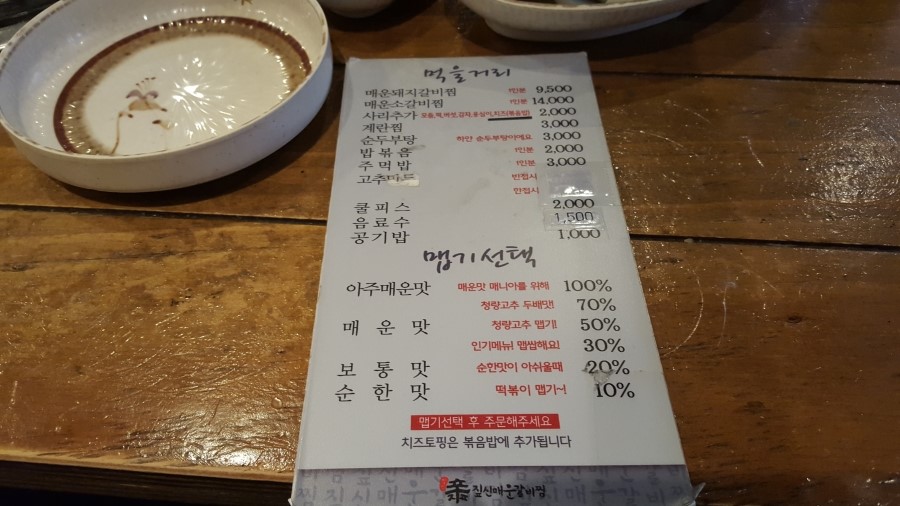 먹을거리
매운돼지갈비찜 1인분 9,500
매운소갈비찜 1인분 14,000
사리추가 모듬,떡,버섯,감자,옹심이,치즈(볶음밥) 2,000
계란찜 3,000
순두부탕 하얀 순두부탕이에요 3,000
밥볶음 1인분 2,000
주먹밥 1인분 3,000
고추 반접시
한접시
쿨피스 2,000
음료수 1,500
공기밥 1,000
맵기선택
아주매운맛 매운맛 매니아를 위해 100%
청량고추 두배맛! 70%
매운맛 청량고추 맵기! 50%
인기메뉴! 맵쌉해요! 30%
보통맛 순한맛이 아쉬울때 20%
순한맛 떡볶이 맵기~! 10%
맵기선택 후 주문해주세요
치즈토핑은 볶음밥에 추가됩니다
질신매운갈비찜